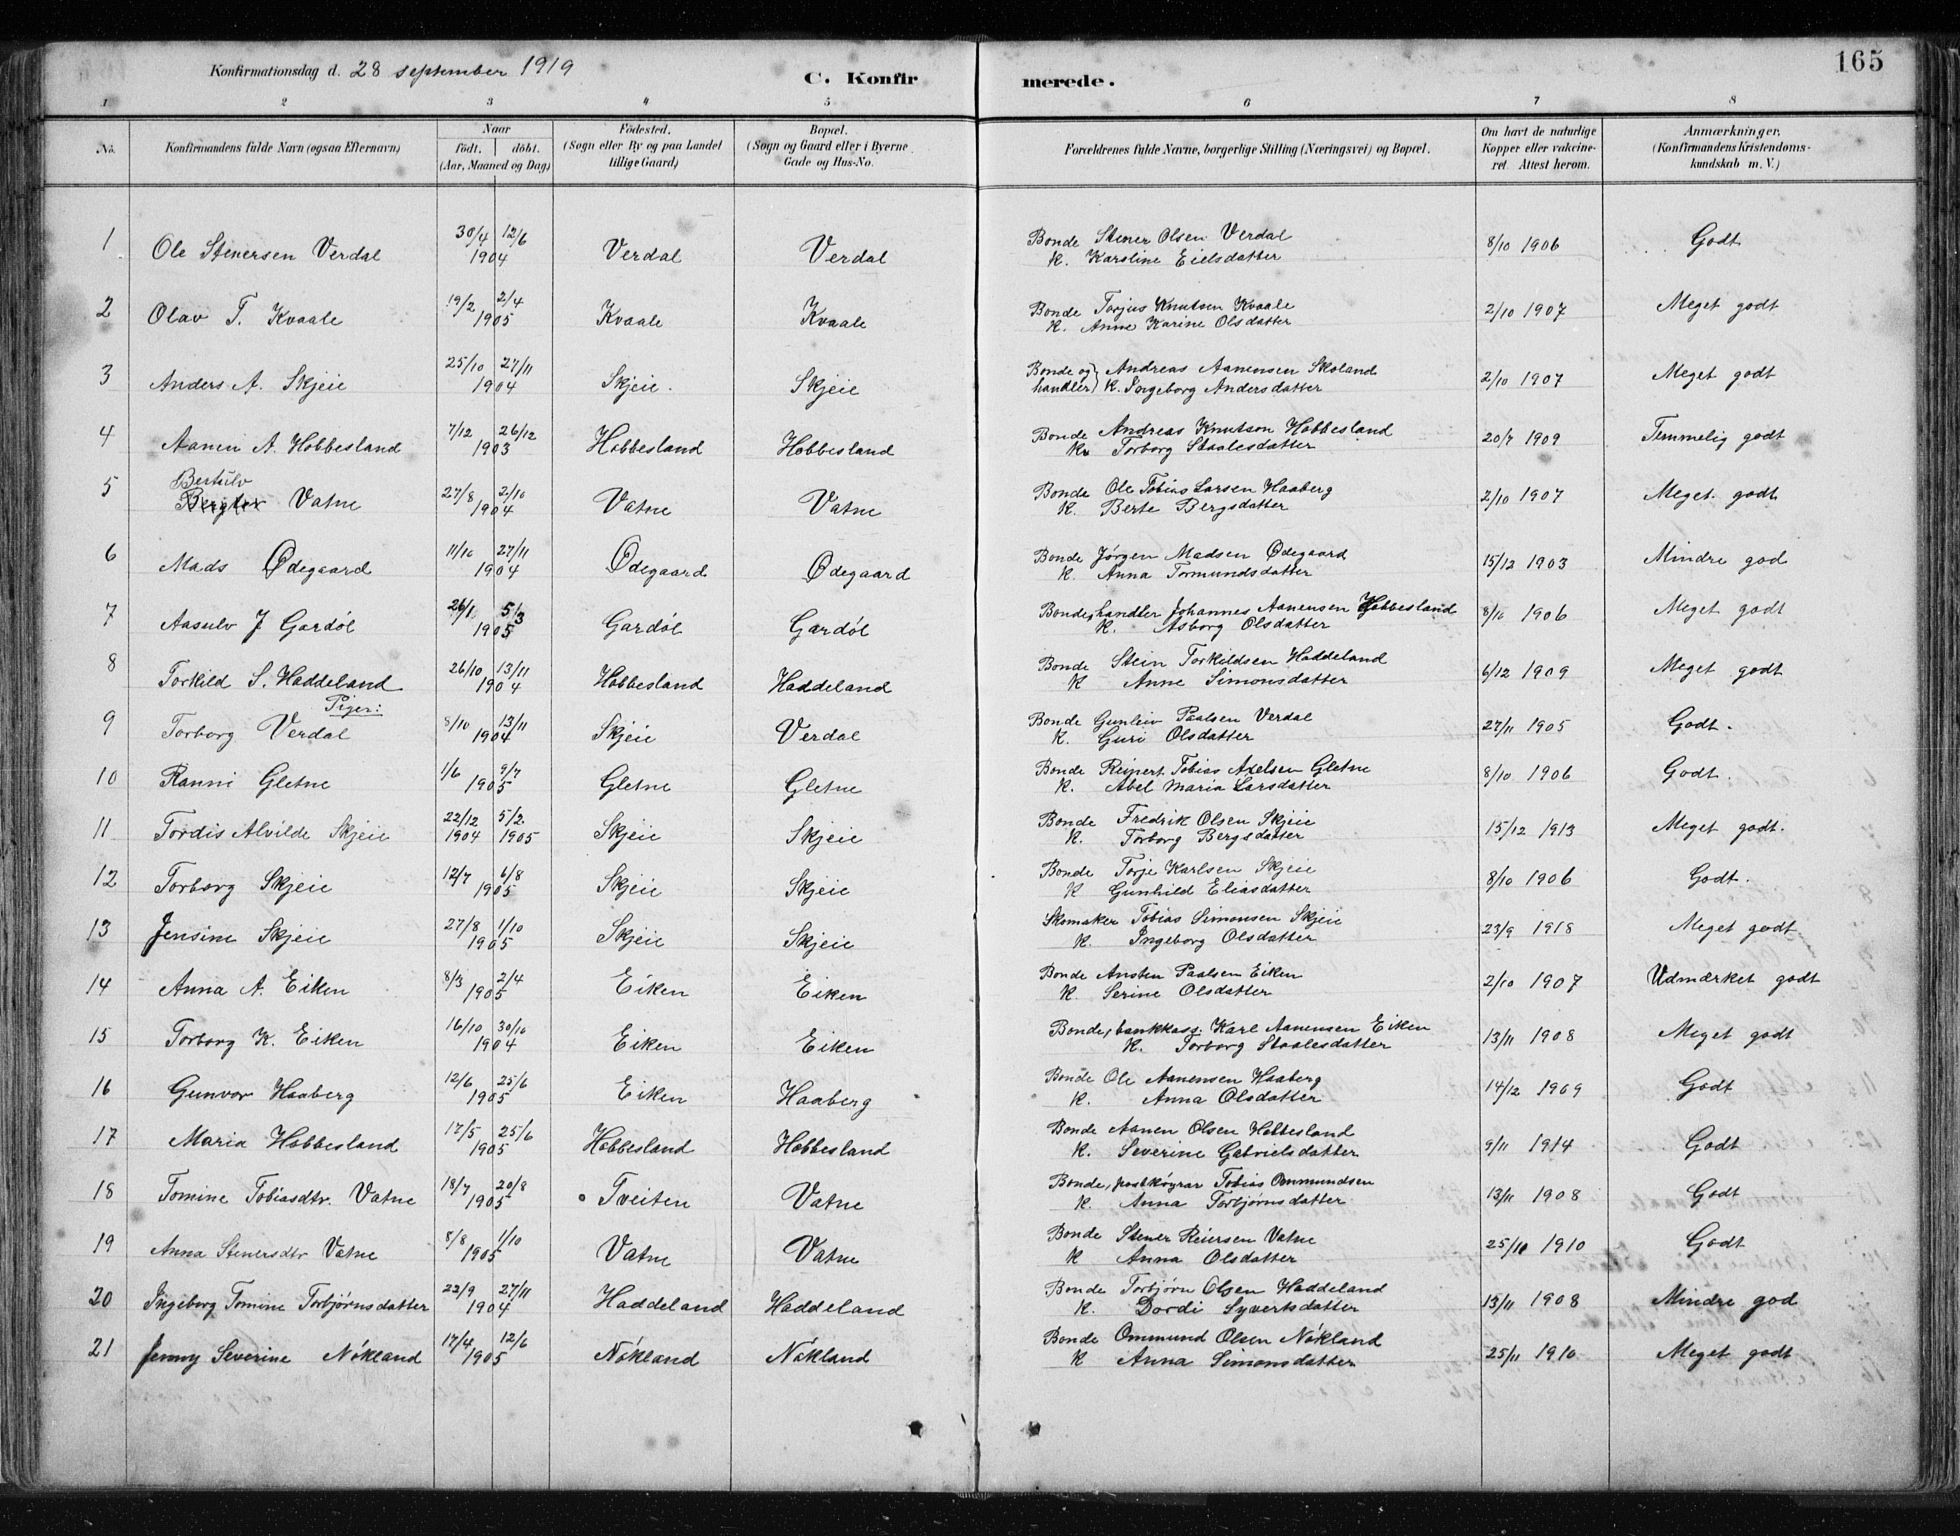 165
Konfirmationsdag d. 28 september 1919 C. Konfirmerede.
1 2 3 4 5 6 7 8
No. Konfirmandens fulde Navn (ogsaa Efternavn) Naar födt. döbt. (Aar, Maaned og Dag) Födested. (Sogn eller By og paa Landet tillige Gaard) Bopæl. (Sogn og Gaard eller i Byerne Gade og Hus-No. Forældrenes fulde Navne, borgerlige Stilling (Næringsvei) og Bopæl. Om havt de naturlige Kopper eller vakcineret. Attest herom. Anmærkninger. (Konfirmandens Kristendomskundskab m. V.)
1 Ole Stenersen Verdal 30/4 12/6 1904 Verdal Verdal Bonde Stener Olsen Verdal K. Karoline Eielsdatter 8/10 1906 Godt
2 Olav T. Kvaale 19/2 2/4 1905 Kvaale Kvaale Bonde Torjus Knutsen Kvaale K. Anne Karine Olsdatter 2/10 1907 Meget godt
3 Anders A. Skjeie 25/10 27/11 1904 Skjeie. Skjeie Bonde og handler} Andreas Aanensen Skoland K. Ingeborg Andersdatter 2/10 1907 Meget godt
4 Aanen A. Hobbesland 7/12 26/12 1903 Hobbesland Hobbesland Bonde Andreas Knutson Hobbesland K. Torborg Staalesdatter 20/7 1909 Temmelig godt
5 Bertulv Bergtor Vatne 27/8 2/10 1904 Vatne Vatne Bonde Ole Tobias Larsen Haaberg K. Berte Bergsdatter 2/10 1907 Meget godt
6 Mads Ødegaard 11/10 27/11 1904 Ødegaard Ødegaard Bonde Jørgen Madsen Ødegaard K. Anna Tormundsdatter 15/12 1903 Mindre god
7 Aasulv J Gardøl 26/1 5/3 1905 Gardøl Gardøl Bonde, handler Johannes Aanensen Hobbesland K. Asborg Olsdatter 8/10 1906 Meget godt
8 Torkild S. Haddeland 26/10 13/11 1904 Hobbesland Haddeland Bonde Stein Torkildsen Haddeland K Anne Simonsdatter 6/12 1909 Meget godt
Piger:
9 Torborg Verdal 8/10 13/11 1904 Skjeie Verdal Bonde Gunleiv Paalsen Verdal K. Guri Olsdatter 27/11 1905 Godt.
10 Ranni Gletne 1/6 9/7 1905 Gletne Gletne Bonde Reinert Tobias Axelsen Gletne K. Abel Maria Larsdatter 8/10 1906 Godt.
11 Tordis Alvilde Skjeie 22/12 1904 5/2 1905 Skjeie Skjeie Bonde Fredrik Olsen Skjeie K. Torborg Bergsdatter 15/12 1913 Meget godt.
12 Torborg Skjeie 12/7 6/8 1905 Skjeie Skjeie Bonde Torje Karlsen Skjeie K Gunhild Eliasdatter 8/10 1906 Godt.
13 Jensine Skjeie 27/8 1/10 1905 Skjeie Skjeie Skomaker Tobias Simonsen Skjeie K. Ingeborg Olsdatter 23/9 1918 Meget godt
14 Anna A. Eiken 8/3 2/4 1905 Eiken Eiken Bonde Ansten Paalsen Eiken K. Serine Olsdatter 2/10 1907 Udmærket godt
15 Torborg K. Eiken 16/10 30/10 1904 Eiken Eiken Bonde, bankkass. Karl Aanensen Eiken K. Torborg Staalesdatter 13/11 1908 Meget godt
16 Gunvor Haaberg 12/6 25/6 1905 Eiken Haaberg Bonde Ole Aanensen Haaberg K. Anna Olsdatter 14/12 1909 Godt
17 Maria Hobbesland 17/5 25/6 1905 Hobbesland Hobbesland Bonde Aanen Olsen Hobbesland K. Severine Gabrielsdatter 9/11 1914 Godt
18 Tomine Tobiasdtr. Vatne 18/7 20/8 1905 Tveiten Vatne Bonde, postkøyrar Tobias Ommundsen K. Anna Torbjørnsdatter 13/11 1908 Godt
19 Anna Stenersdtr Vatne 8/8 1/10 1905 Vatne Vatne Bonde Stener Reiersen Vatne K Anna Olsdatter 25/11 1910 Godt
20 Ingeborg Tomine Torbjørnsdatter 22/9 27/11 1904 Haddeland Haddeland Bonde Torbjørn Olsen Haddeland K. Dordi Syvertsdatter 13/11 1908 Mindre god
21 Jenny Severine Nøkland 17/4 12/6 1905 Nøkland Nøkland Bonde Ommund Olsen Nøkland K Anna Simonsdatter 25/11 1910 Meget godt